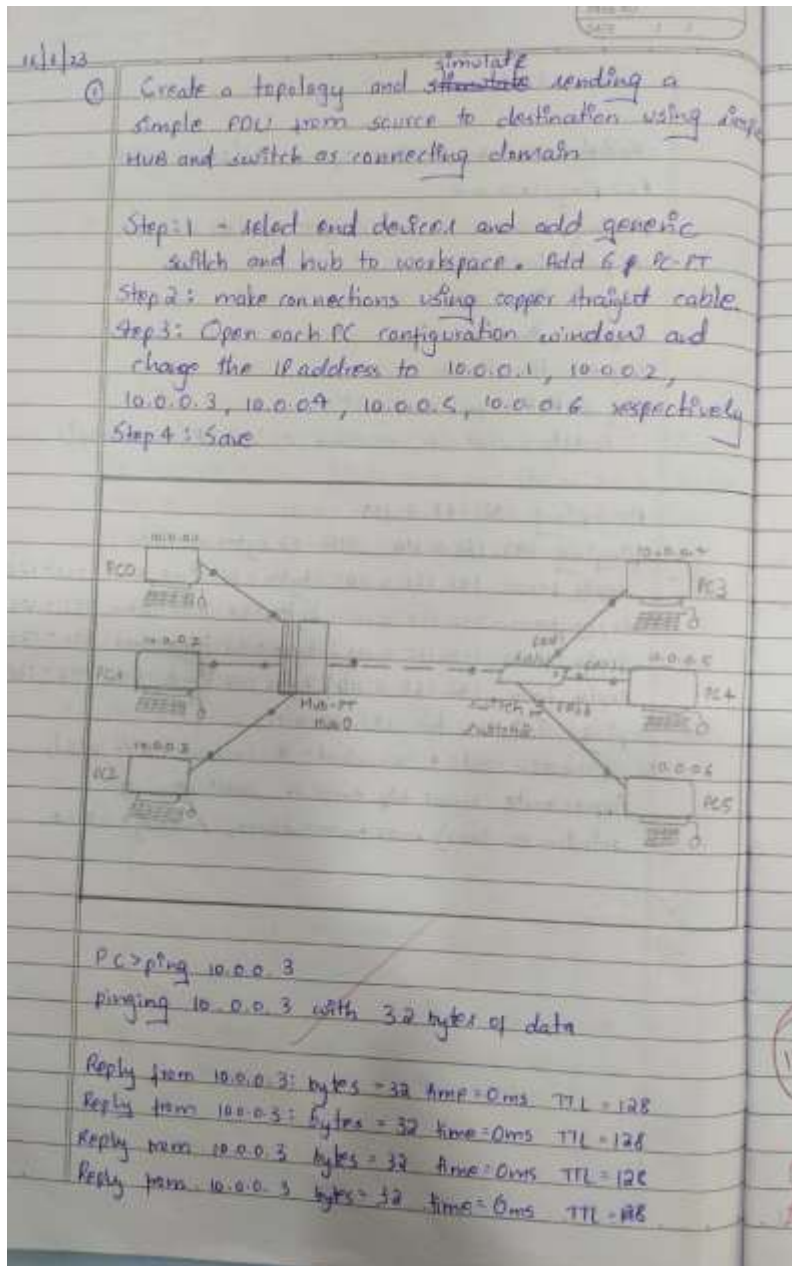 DATE
① Create a topology and simulate sending a
simple PDU from source to destination using
HUB and switch as connecting domain
Step:1 - select end devices and add generic
switch and hub to workspace. Add 6 PC-PT
Step 2: make connections using copper straight cable.
Step 3: Open each PC configuration window and
change the IP address to 10.0.0.1, 10.0.0.2,
10.0.0.3, 10.0.0.4, 10.0.0.5, 10.0.0.6 respectively
Step 4: Save
10.0.0.1
PC0
10.0.0.4
PC3
10.0.0.2
PC1
Hub-PT
Hub0
10.0.0.5
PC4
switch
10.0.0.3
PC2
10.0.0.6
PC5
PC>ping 10.0.0.3
pinging 10.0.0.3 with 32 bytes of data
Reply from 10.0.0.3: bytes = 32 time=0ms TTL = 128
Reply from 10.0.0.3: bytes = 32 time=0ms TTL = 128
Reply from 10.0.0.3 bytes = 32 time=0ms TTL = 128
Reply from 10.0.0.3 bytes = 32 time=0ms TTL = 128